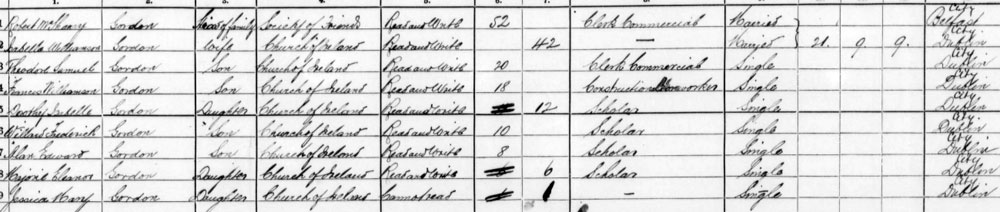 1. 2. 3. 4. 5. 6. 7.
1 Robert McHenry Gordon Head of Family Society of Friends Read and Write 52 Clerk Commercial Married City Belfast
2 Isabella Williamson Gordon Wife Church of Ireland Read and Write 42 — Married 21 9 9 City Dublin
3 Theodore Samuel Gordon Son Church of Ireland Read and Write 20 Clerk Commercial Single City Dublin
4 Francis Williamson Gordon Son Church of Ireland Read and Write 18 Single City Dublin
5 Dorothy Isabella Gordon Daughter Church of Ireland Read and Write 12 Scholar Single City Dublin
6 Frederick Gordon Son Church of Ireland Read and Write 10 Scholar Single City Dublin
7 Allan Edward Gordon Son Church of Ireland Read and Write 8 Scholar Single City Dublin
8 Marjorie Eleanor Gordon Daughter Church of Ireland Read and Write 6 Scholar Single City Dublin
9 Jessica Mary Gordon Daughter Church of Ireland Cannot read 1 — Single City Dublin